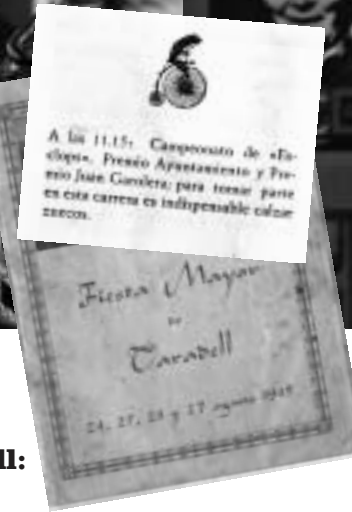 A las 11.15: Campeonato de «Es-
clops», Premio Ayuntamiento y Pre-
mio Juan Garolera; para tomar parte
en esta carrera es indispensable calzar
zuecos.
Fiesta Mayor
de
Taradell
24, 25, 26 y 27 agosto
ll: